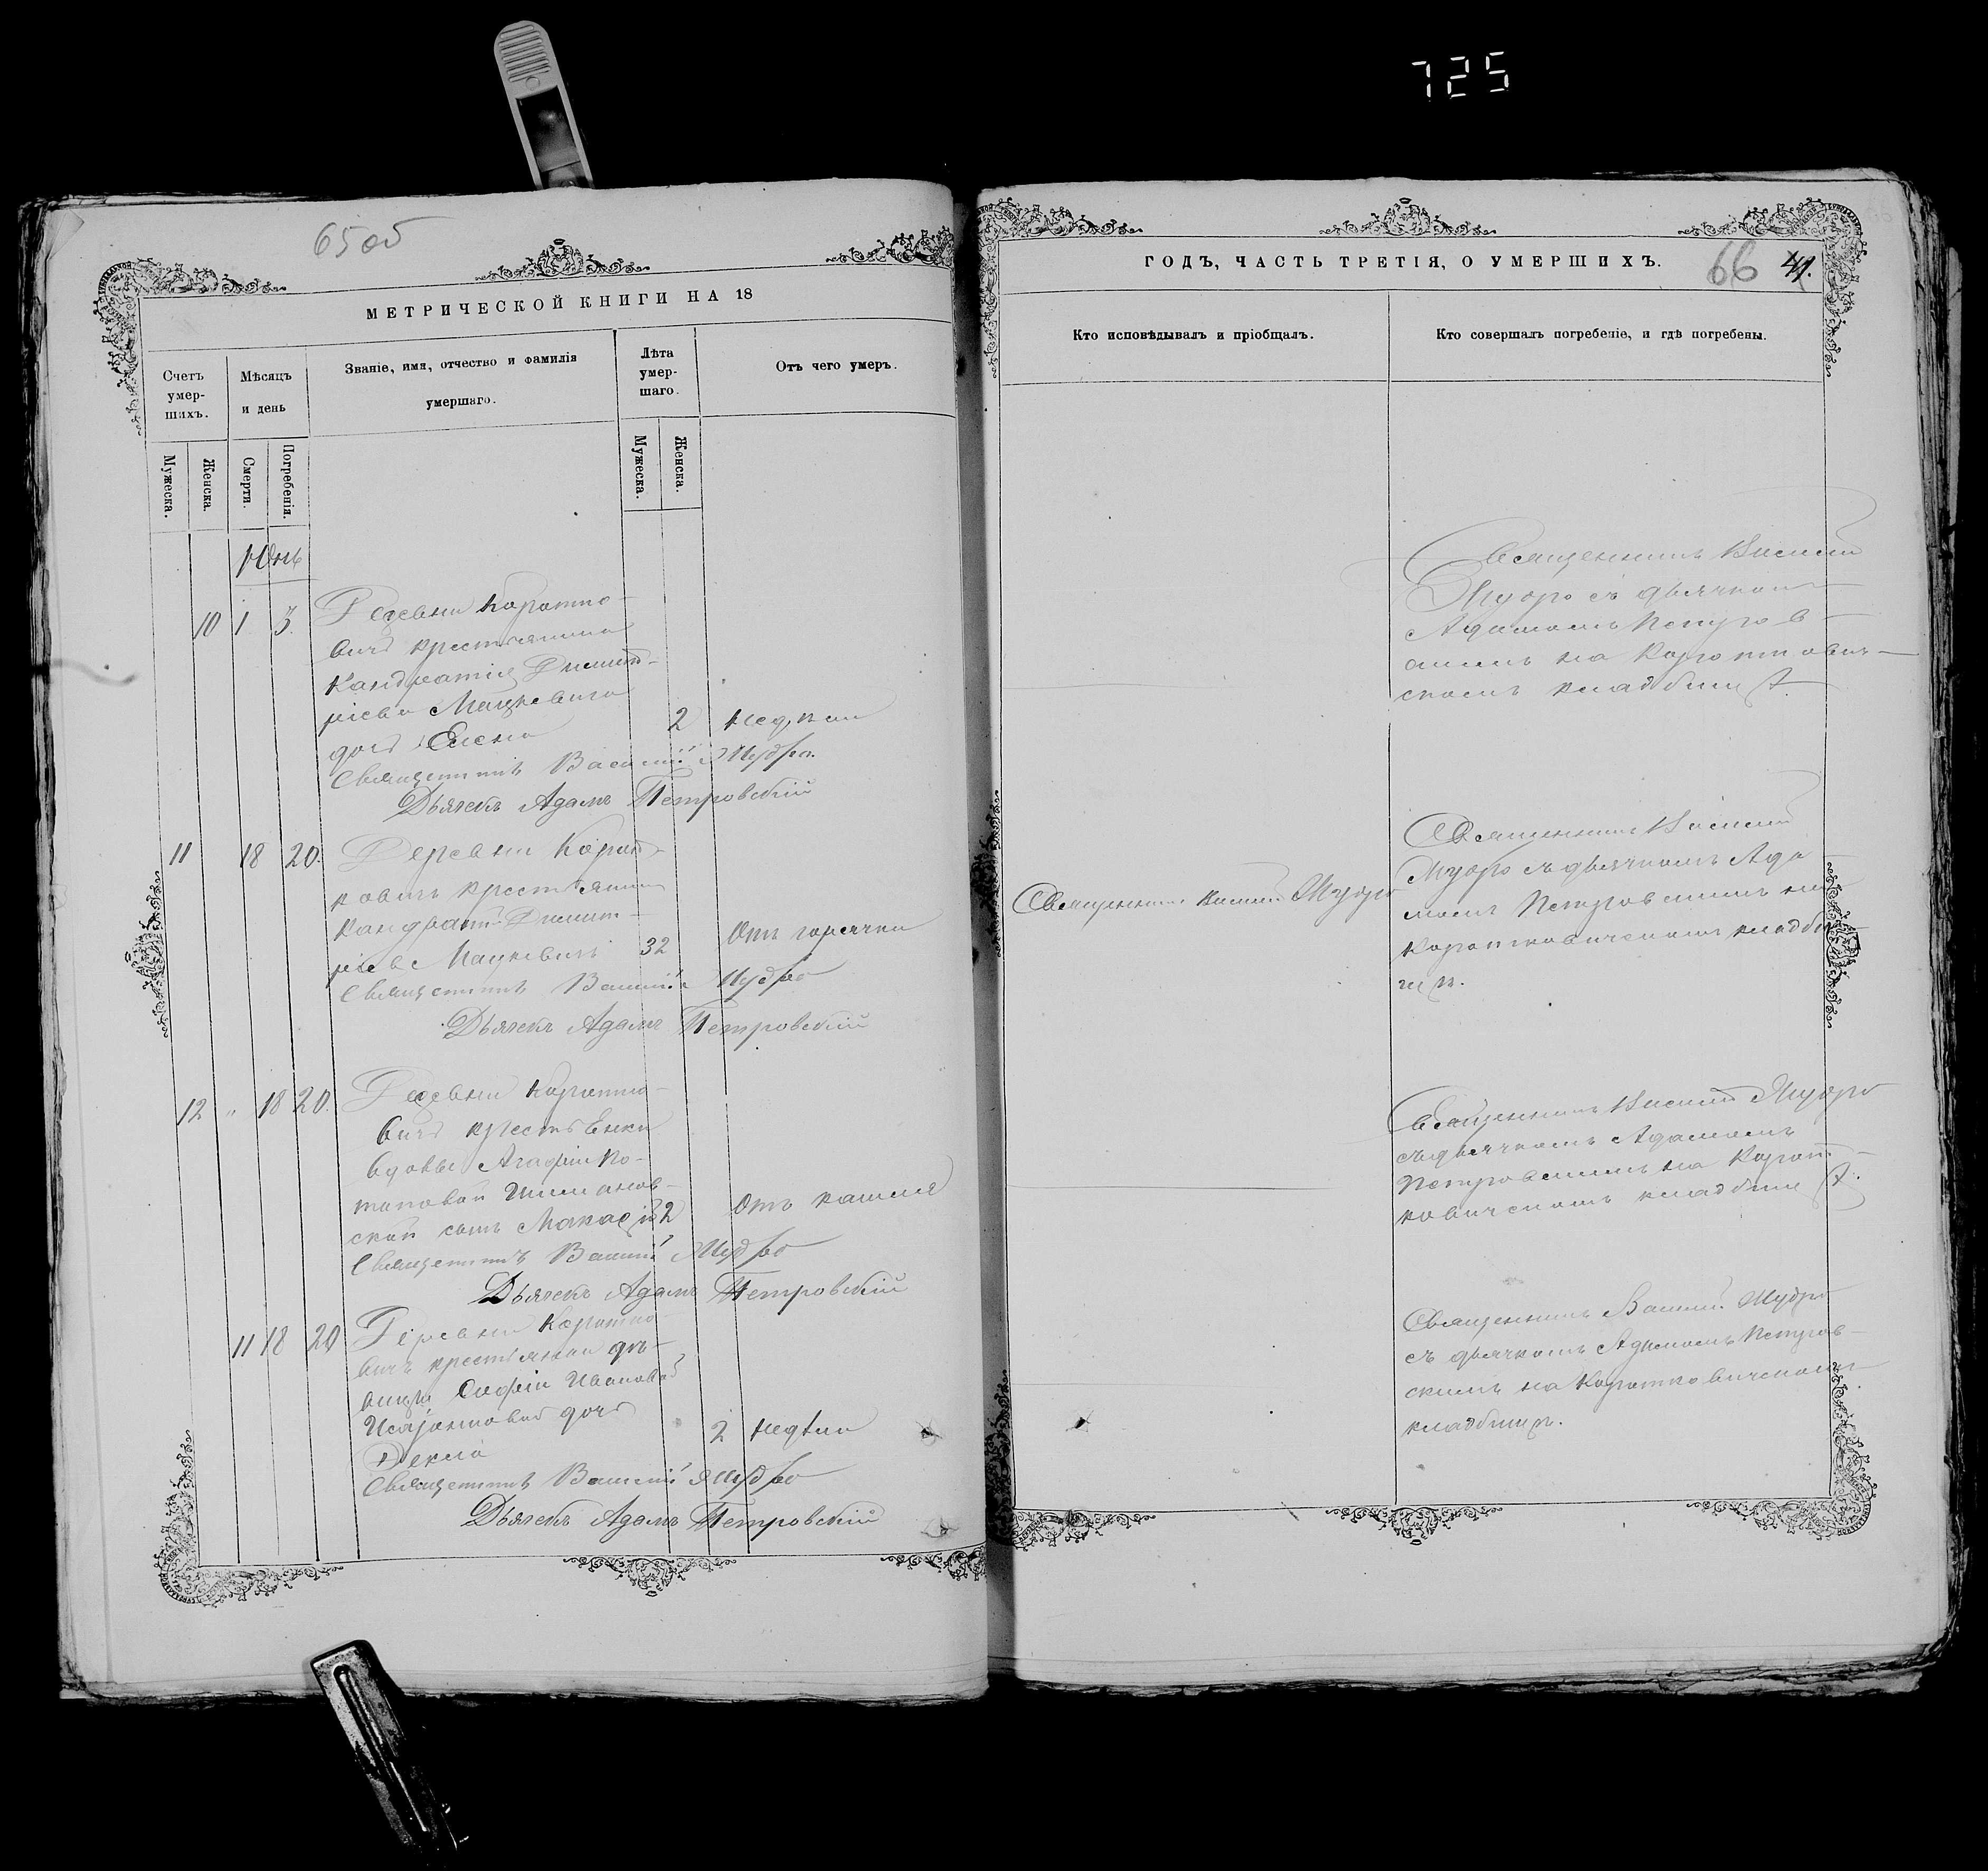 725
65 об
МЕТРИЧЕСКОЙ КНИГИ НА 18
Счетъ умер-шихъ.
Мѣсяцъ и день
Званіе, имя, отчество и фамилія умершаго.
Лѣта умер-шаго.
Отъ чего умеръ.
Мужеска.
Женска.
Смерти.
Погребенія.
Мужеска.
Женска.
Юнь
10 1 3 Деревни Коротко-
вичъ крестьянина
Кандратія Димит-
ріева Мацкевича
дочь Елена 2 нед,
Священникъ Василій Мудро.
Дьячекъ Адамъ Петровскій
11 18 20. Деревни Корот-
ковичъ крестьянинъ
Кандратъ Димит-
ріевъ Мацкевичъ 32 Отъ горячки
Священникъ Василій Мудро
Дьячекъ Адамъ Петровскій
12 " 18 20. Деревни Коротко-
вичъ крестьянки
вдовы Агафіи По-
таповой
ской сынъ Макарій 2 Отъ кашля
Священникъ Василій Мудро
Дьячекъ Адамъ Петровскій
11 18 20 Деревни Коротко-
вичъ крестьянки дѣ-
вицы Софіи Ивановой
дочь 2 недѣли
Фекла
Священникъ Василій Мудро
Дьячекъ Адамъ Петровскій
ГОДЪ, ЧАСТЬ ТРЕТІЯ, О УМЕРШИХЪ.
66
Кто исповѣдывалъ и пріобщалъ.
Кто совершалъ погребеніе, и гдѣ погребены.
Священникъ Василій
Мудро съ дьячкомъ
Адамомъ Петров-
скимъ на Короткович-
скомъ кладбищѣ.
Священникъ Василій Мудро
Священникъ Василій
Мудро съ дьячкомъ Ада
момъ Петровскимъ на
Коротковичскомъ кладби-
щѣ.
Священникъ Василій Мудро
съ дьячкомъ Адамомъ
Петровскимъ на Корот-
ковичскомъ кладбищѣ.
Священникъ Василій Мудро
съ дьячкомъ Адамомъ Петров-
скимъ на Коротковичскомъ
кладбищѣ.